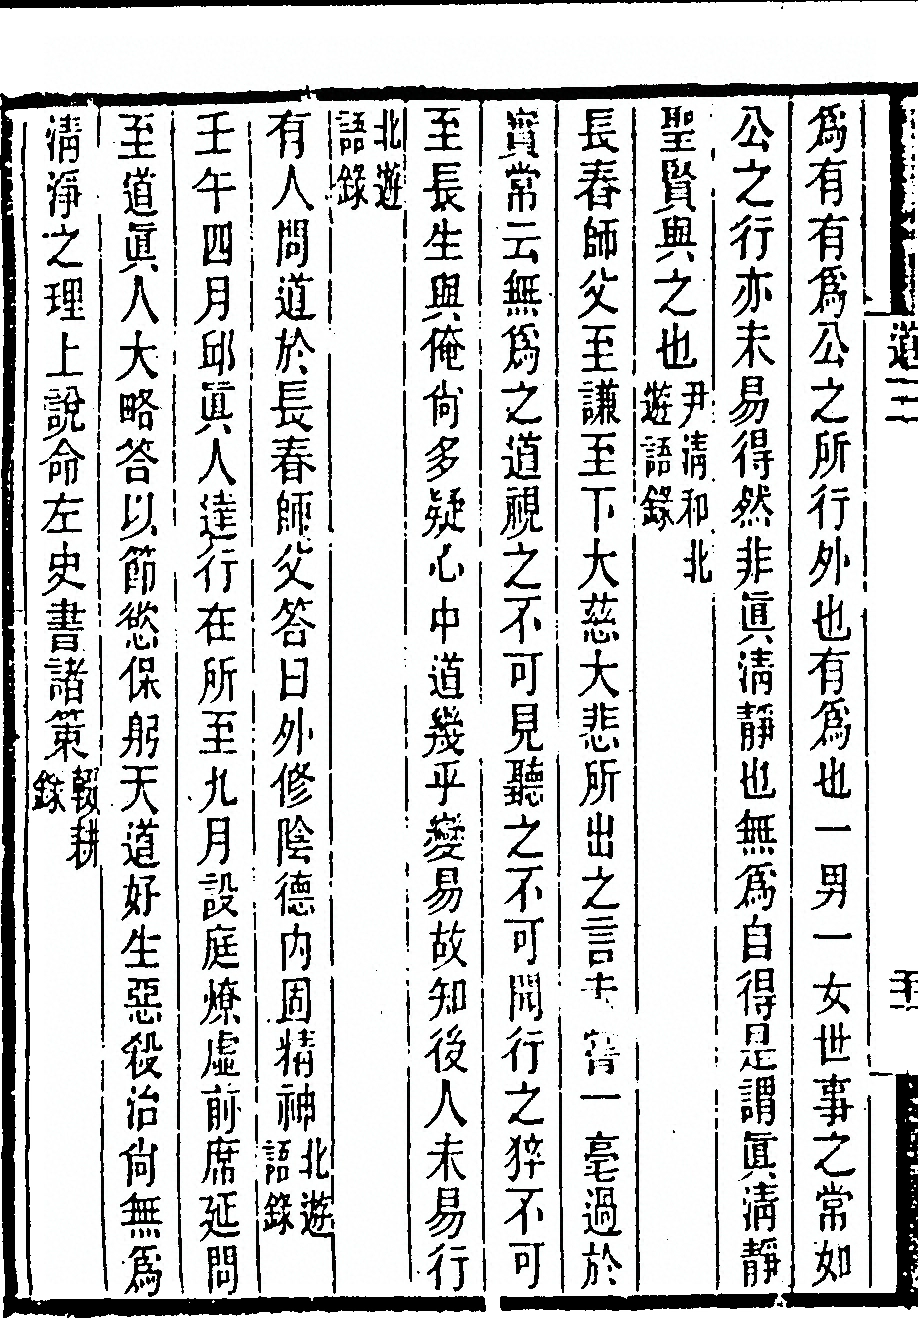 爲有有爲公之所行外也有爲也一男一女世事之常如
公之行亦未易得然非眞淸靜也無爲自得是謂眞淸靜
聖賢與之也尹淸和北遊語錄
長春師父至謙至下大慈大悲所出之言未嘗一毫過於
實常云無爲之道視之不可見聽之不可聞行之猝不可
至長生與俺尙多疑心中道幾乎變易故知後人未易行
北遊語錄
有人問道於長春師父答曰外修陰德内固精神北遊語錄
壬午四月邱眞人達行在所至九月設庭燎虛前席延問
至道眞人大略答以節慾保躬天道好生惡殺治尙無爲
淸淨之理上說命左史書諸策輟耕錄
道二